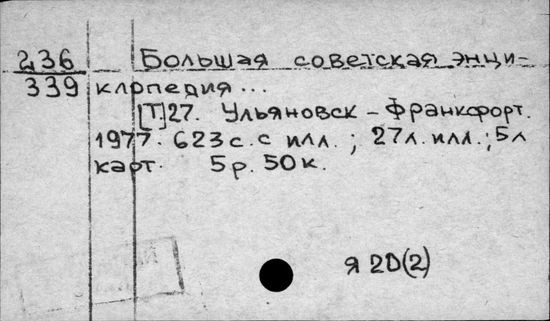 236 Большая советская энци-
339 клопедия...
[Т]27. Ульяновск - Франкфорт.
1977. 623с. с илл.; 27л. илл.; 5л
карт. 5р. 50к.
Я 2D(2)